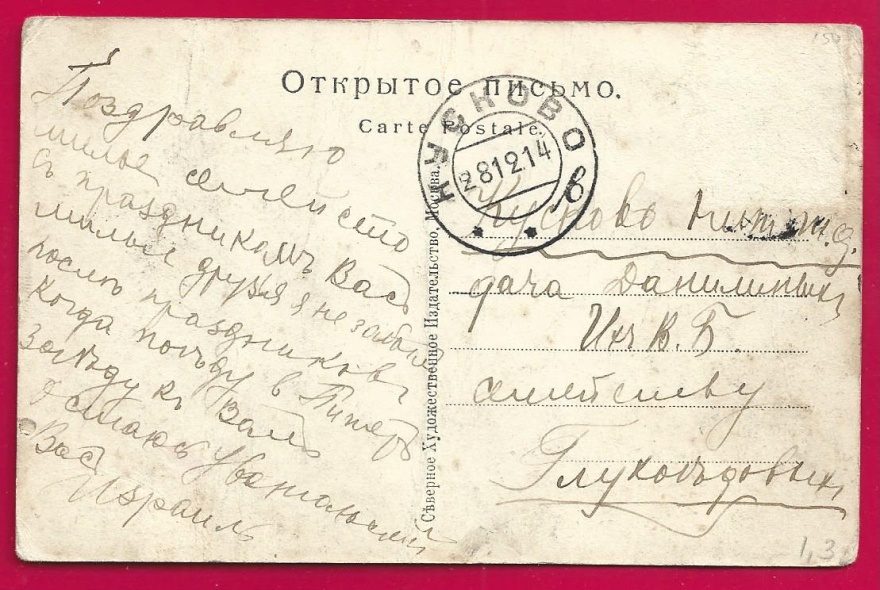 Открытое письмо.
Carte Postale.
КУСКОВО
28 12 14
в
Сѣверное Художественное Издательство, Москва.
Поздравляю
милое семейство
съ праздникомъ Васъ
милые друзья я не забылъ
послѣ праздниковъ
когда поѣду в Питеръ
Заѣду къ Вамъ
Остаюсь уважающей
Васъ
Израиль
Кусково Ниж.ж.д.
дача Данилиныхъ
Ихъ В. Б.
семейству
Глуховѣдовыхъ
1,3